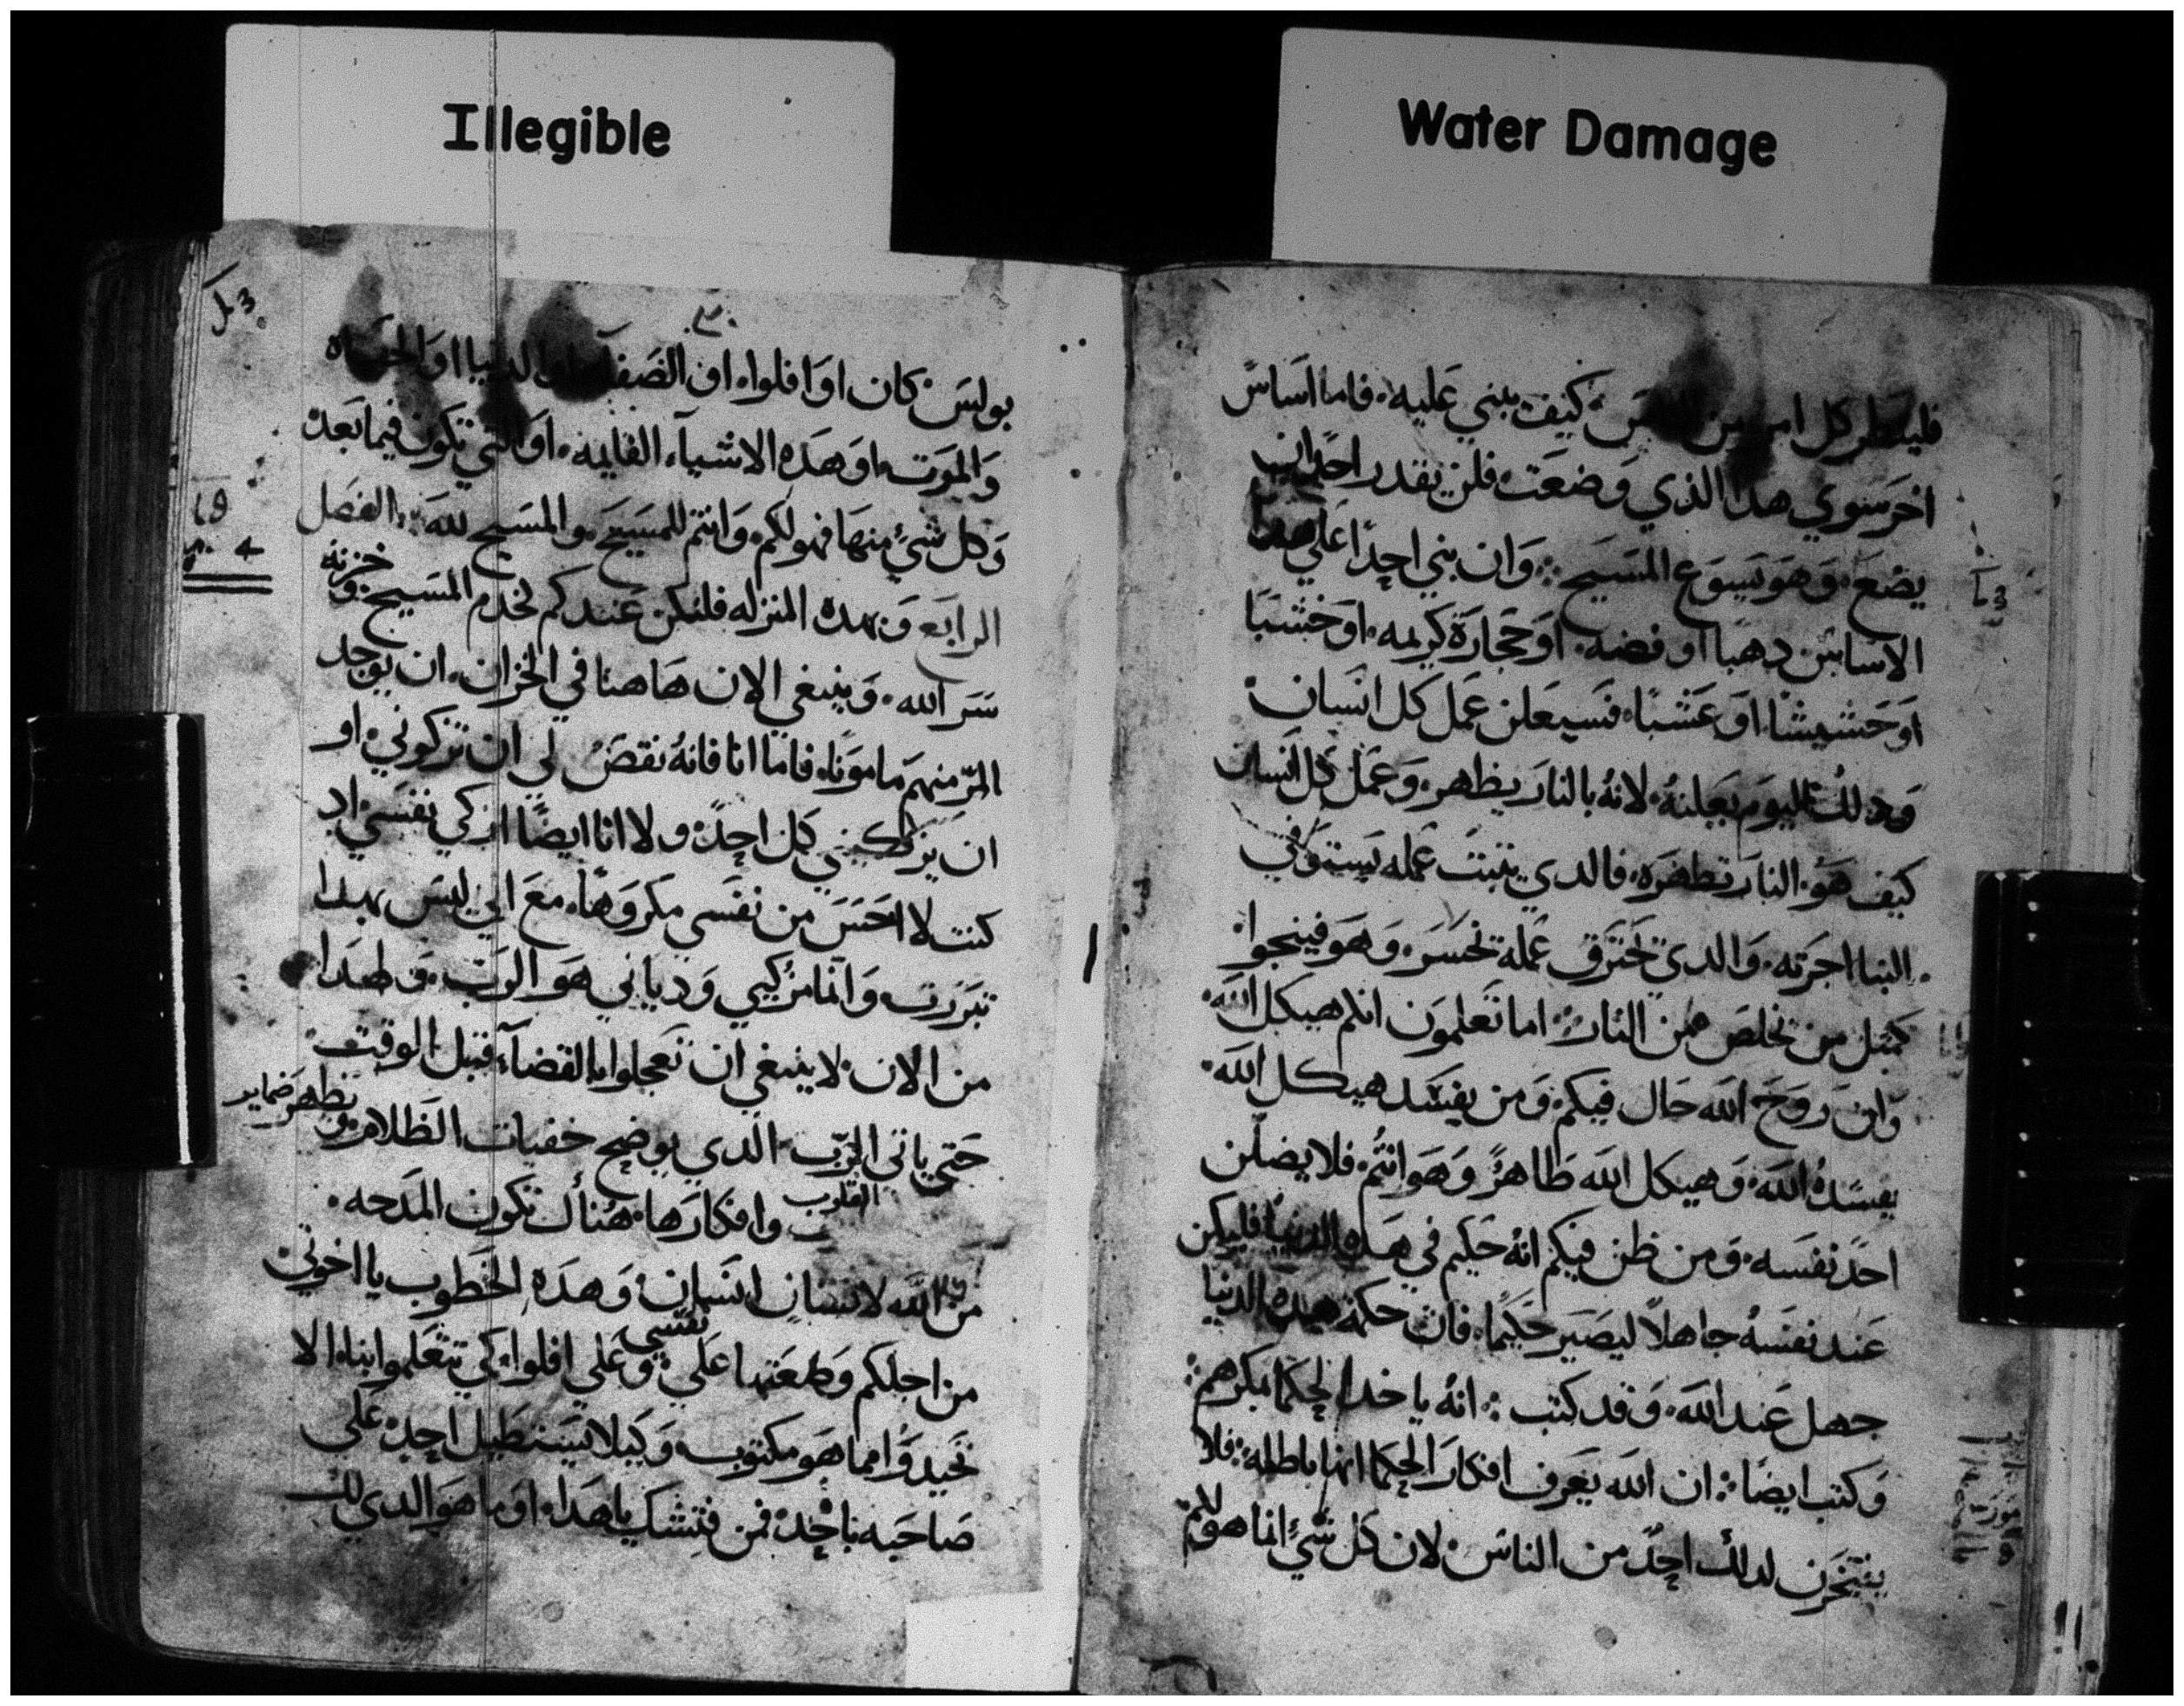 Illegible
Water Damage
فلينظر كل امر من كيف يبني عليه فاما اساس
اخر سوي هدا الذي وضعت فلن يقدر احدا ان
يضع وهو يسوع المسيح وان بني احدا علي هدا
الاساس دهبا او فضه او حجارة كريمه او خشبا
او حشيشا او عشبا فسيعلن عمل كل انسان
ودلك اليوم يعلنه لانه بالنار يظهر وعمل كل انسان
كيف هو النار تظهره فالدي يتبت عمله يستوفي
البنا اجرته والدي يحترق عمله يخسر وهو فينجوا
كمتل من تخلص من النار اما تعلمون انكم هيكل الله
وان روح الله حال فيكم ومن يفسد هيكل الله
يفسده الله وهيكل الله طاهر وهو انتم فلا يضلن
احد نفسه ومن ظن فيكم انه حكيم في هده الدنيا فليكن
عند نفسه جاهلا ليصير حكيما فان حكمة هده الدنيا
جهل عند الله وقد كتب انه ياخد الحكما بمكرهم
وكتب ايضا ان الله يعرف افكار الحكما انها باطله فلا
يفتخرن لدلك احد من الناس لان كل شي انما هو لكم
بولس كان او افلوا او الصفا الدنيا او الحياه
والموت او هده الاشياء القايمه او التي تكون فيما بعد
وكل شي منها فهو لكم وانتم للمسيح والمسيح لله الفصل
الرابع وبهده المنزله فلنكن عندكم كخدم المسيح وخزنة
سر الله وينبغي الان هاهنا في الخزان ان يوجد
المر منهم مامونا فاما انا فانه نقص لي ان تزكوني او
ان يزكيني كل احد ولا انا ايضا ازكي نفسي اد
كنت لا احتس من نفسي مكروها مع اني ليس بهدا
تبررت وانما مزكيي ودياني هو الرب ولهدا
من الان لا ينبغي ان تعجلوا بالقضاء قبل الوقت
حتي ياتي الرب الدي يوضح خفيات الظلام وتظهر ضماير
القلوب وافكارها هناك تكون المدحه
من الله لانسان انسان وهده الخطوب يا اخوتي
من اجلكم وضعتها علي نفسي وعلي افلوا كي تتعلموا بنا الا
تحيدوا مما هو مكتوب وكيلا يستطيل احد علي
صاحبه باحد فمن فتشك ياهدا او ما هو الدي لك